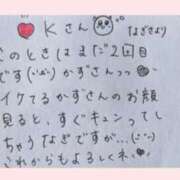 ❤ Kさん なぎさより
このときはまだ2回目
です(•ᴗ•) かずさんっつ♡
イケてるかずさんのお顔
見ると、すぐキュンってし
ちゃうなぎですが、、(˙-˙)
これからもよろしくネ、♡